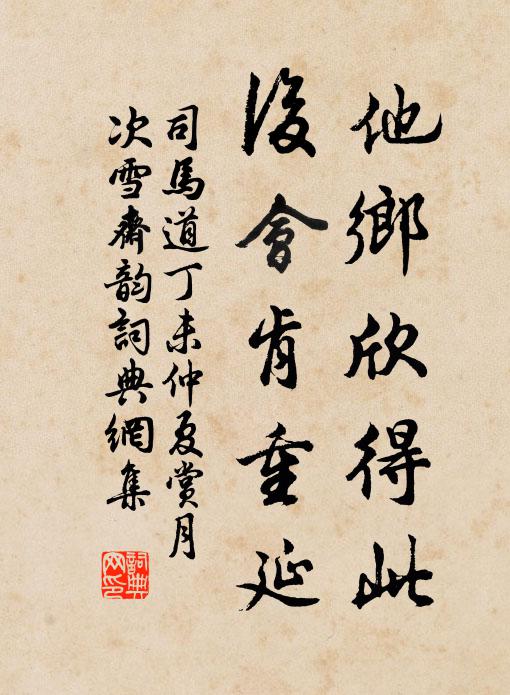 他鄉欣得此
後會肯重延
司馬道丁未仲夏賞月
次雪齋韵詞典網集
詞典
网印